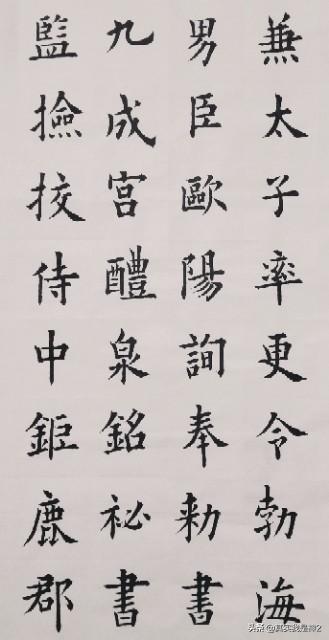 兼太子率更令勃海
男臣歐陽詢奉勅書
九成宮醴泉銘祕書
監撿挍侍中鉅鹿郡
头条